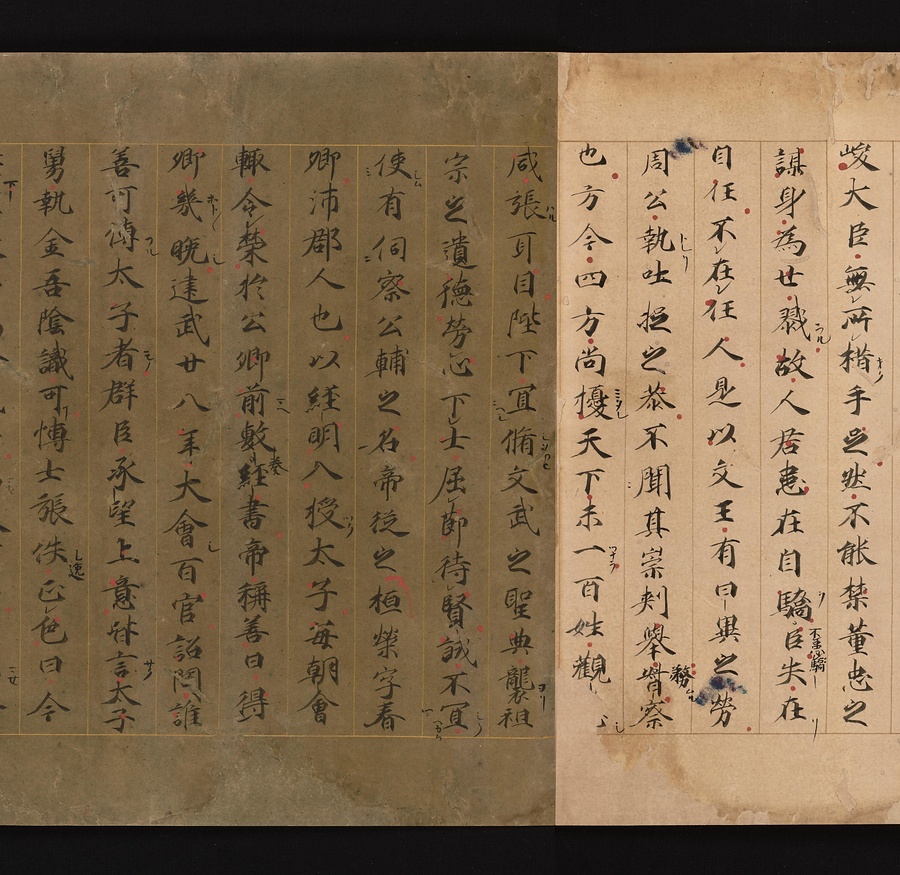 峻大臣無所措手之然不能禁董忠之
謀身為世戮故人君患在自驕臣失在
自任不在任人是以文王有日昃之勞
周公執吐捉之恭不聞其崇刺舉督察
也方今四方尚擾天下未一百姓觀
咸張耳目陛下宜脩文武之聖典襲祖
宗之遺德勞心下士屈莭待賢誠不宜
使有伺察公輔之名帝從之桓榮字春
卿沛郡人也以經明入授太子每朝會
輙令榮於公卿前敷經書帝稱善曰得
卿幾晚建武廿八年大會百官詔問誰
善可傅太子者群臣承望上意皆言太子
舅執金吾陰識可博士張佚正色曰今